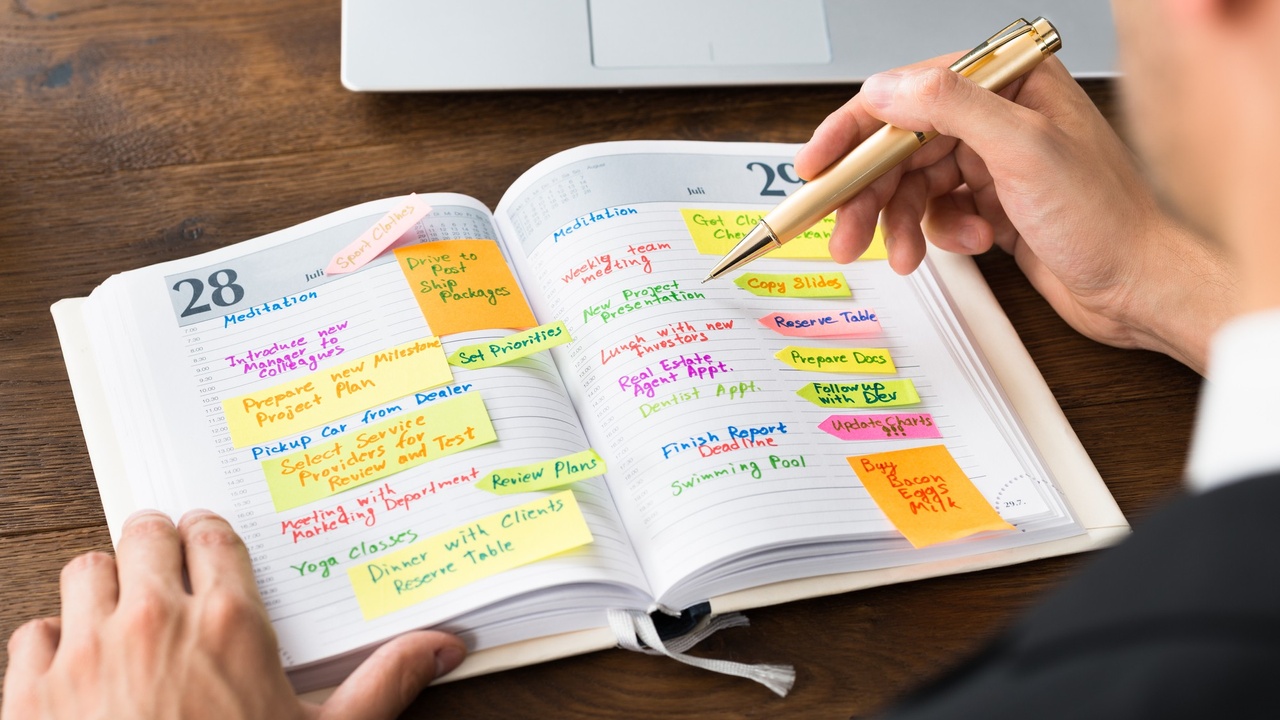 Sport Clothes
28
Juli
Meditation
Drive to
Post
Ship
Packages
Introduce new
Manager to
colleagues
Set Priorities
Prepare new Milestone
Project Plan
Pickup Car from Dealer
Select Service
Providers for
Review and Test
Review Plans
Meeting with
Marketing Department
Yoga Classes
Dinner with Clients
Reserve Table
August
Juli
29
Meditation
Get
Weekly team
meeting
Copy Slides
New Project
Presentation
Reserve Table
Lunch with new
Investors
Prepare Docs
Real Estate
Agent Appt.
Followup
with Dev
Dentist Appt.
Update Charts
Finish Report
Deadline
Swimming Pool
Buy
Bacon
Eggs
Milk
29.7.